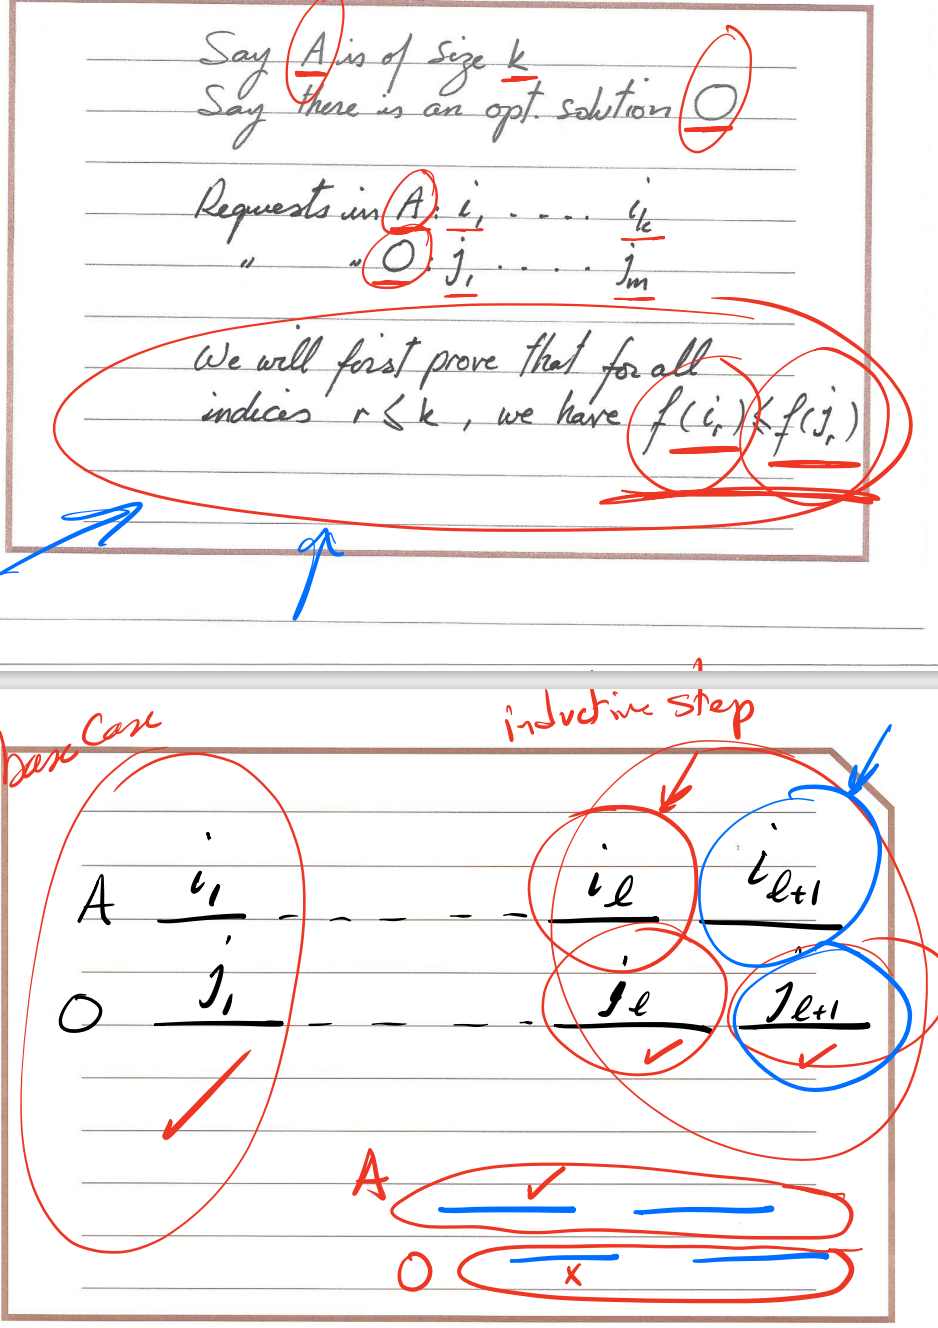 Say A is of size k
Say there is an opt. solution O
Requests in A: i₁ . . . . iₖ
" " O: j₁ . . . . . jₘ
We will first prove that for all
indices r ≤ k, we have f(iᵣ) ≤ f(jᵣ)
base case
inductive step
A i₁ - - - - - iℓ iℓ+1
O j₁ - - - - - jℓ jℓ+1
A
O